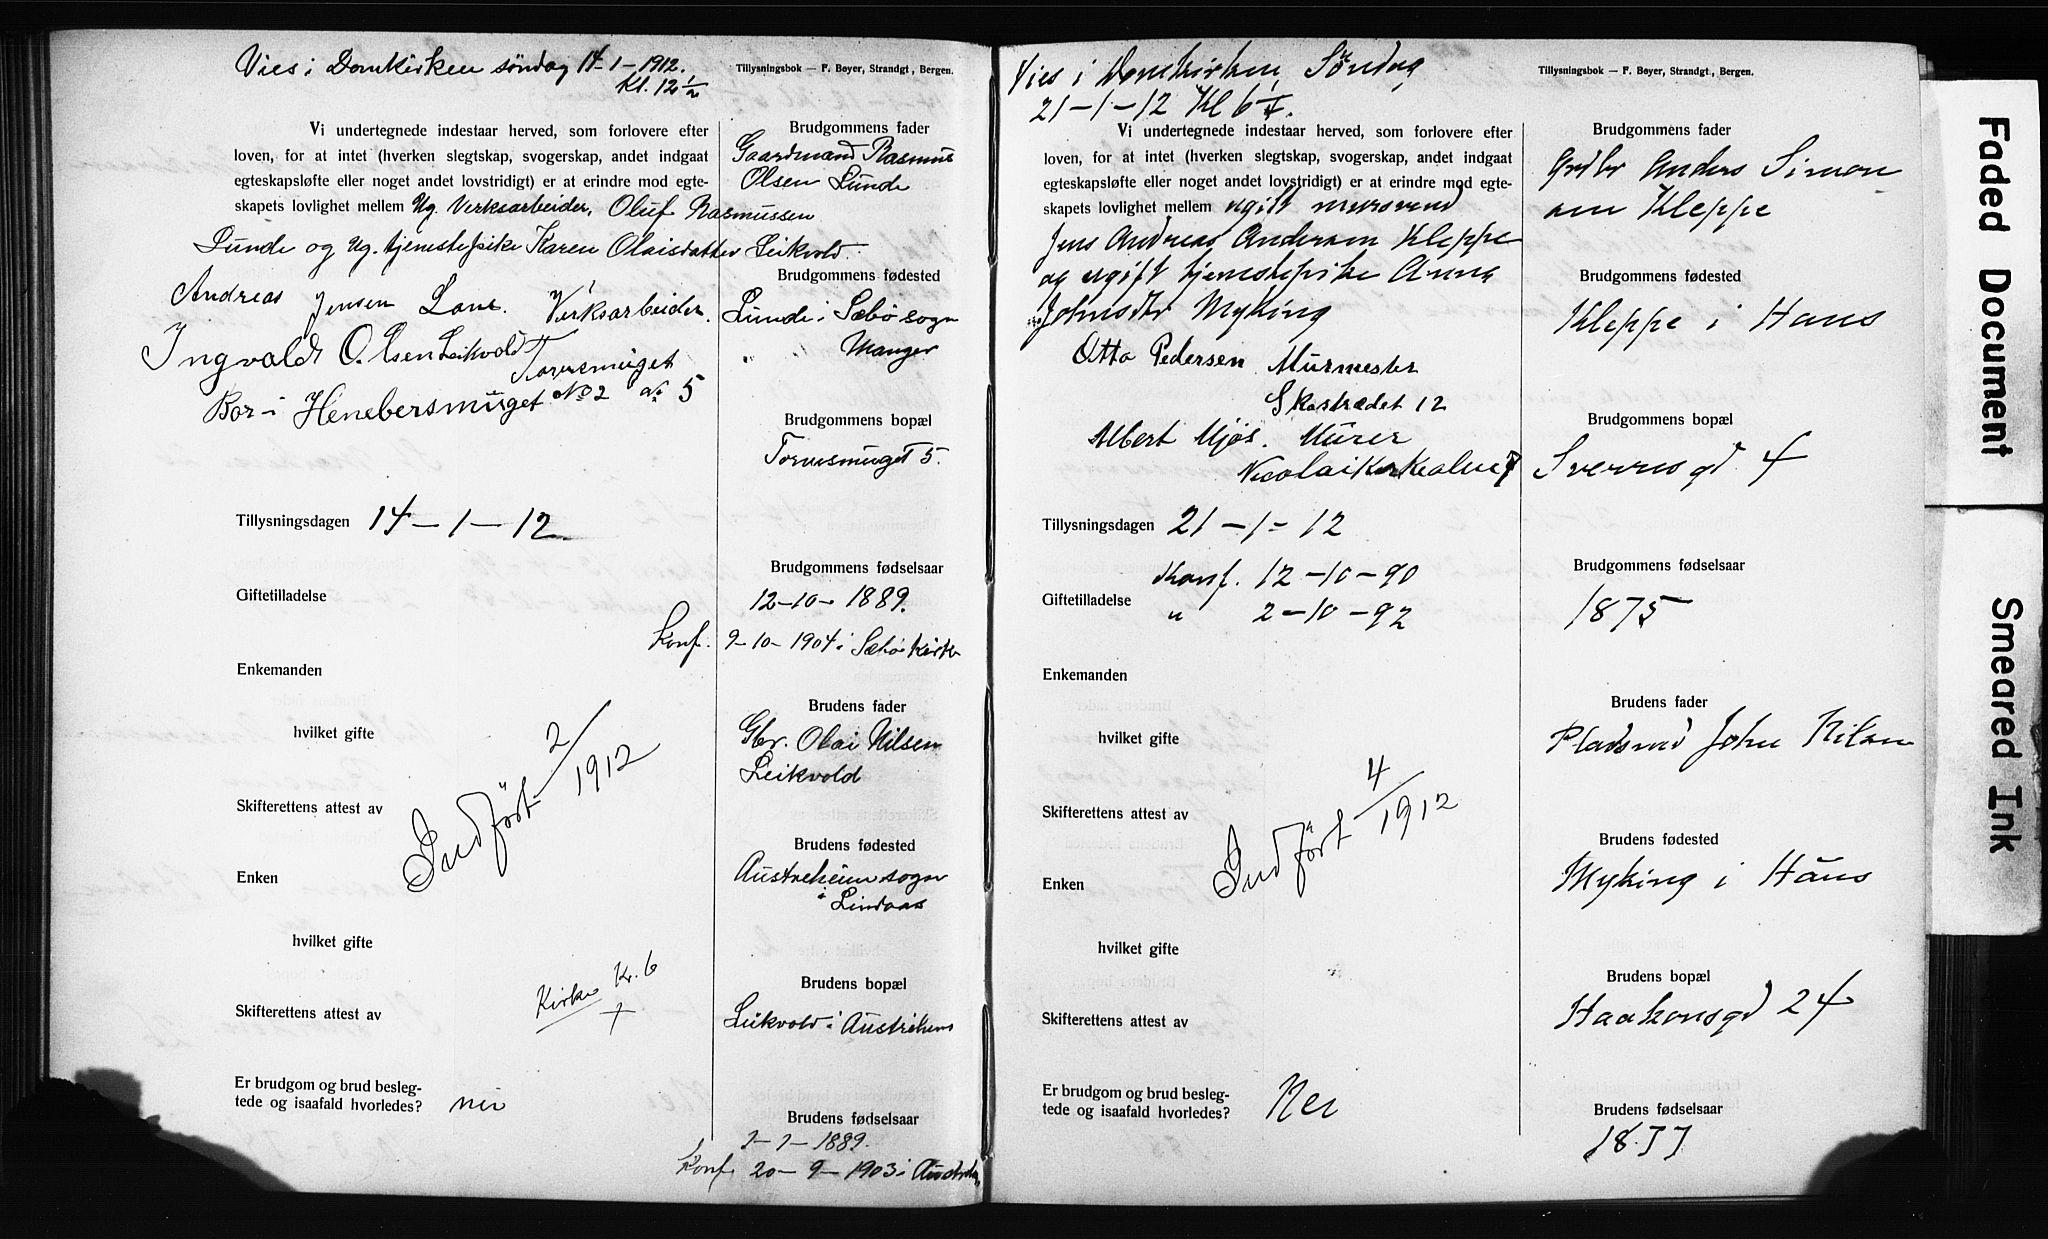 Vies i Domkirken søndag 14-1-1912.
Kl. 12 1/2
Tillysningsbok — F. Beyer, Strandgt., Bergen.
Vi undertegnede indestaar herved, som forlovere efter
loven, for at intet (hverken slegtskap, svogerskap, andet indgaat
egteskapsløfte eller noget andet lovstridigt) er at erindre mod egte-
skapets lovlighet mellem Ug. Verksarbeider, Oluf Rasmussen
Lunde og ug. tjenestepike Karen Olaisdatter Leikvold.
Andreas Jensen Verksarbeider.
Ingvald Olsen Leikvold
Tornesmuget
Bor i Henebersmuget No 2 No 5
Tillysningsdagen 14-1-12.
Giftetilladelse
Enkemanden
hvilket gifte
Skifterettens attest av
Indført 2/1912
Enken
hvilket gifte
Kirke Kr. 6
Skifterettens attest av
Er brudgom og brud besleg-
tede og isaafald hvorledes? nei
Brudgommens fader
Gaardmand Rasmus
Olsen Lunde
Brudgommens fødested
Lunde i Sæbø sogn
Manger
Brudgommens bopæl
Tornesmuget 5.
Brudgommens fødselsaar
12-10-1889.
Konf. 2-10-1904 i Sæbø kirke
Brudens fader
Gbr. Olai Nilsen
Leikvold
Brudens fødested
Austreheim sogn
i Lindaas
Brudens bopæl
Leikvold i Austrheim
Brudens fødselsaar
1-1-1889.
Konf. 20-9-1903 i
Vies i Domkirken, Søndag
21-1-12 Kl 6
Tillysningsbok — F. Beyer, Strandgt., Bergen.
Vi undertegnede indestaar herved, som forlovere efter
loven, for at intet (hverken slegtskap, svogerskap, andet indgaat
egteskapsløfte eller noget andet lovstridigt) er at erindre mod egte-
skapets lovlighet mellem ugift mursvend
Jens Andreas Andersen Kleppe
og ugift tjenestepike Anna
Johnsdtr Myking
Otto Pedersen Murmester
Skostrædet 12
Albert Mjøs. Murer
Nicolaikirkealm 7
Tillysningsdagen 21-1-12
Konf. 12-10-90
Giftetilladelse " 2-10-92
Enkemanden
hvilket gifte
Skifterettens attest av
Indført 4/1912
Enken
hvilket gifte
Skifterettens attest av
Er brudgom og brud besleg-
tede og isaafald hvorledes? Nei
Brudgommens fader
Grdbr Anders Simon
sen Kleppe
Brudgommens fødested
Kleppe i Haus
Brudgommens bopæl
Sverresgd 4
Brudgommens fødselsaar
1875
Brudens fader
Pladsmd John Nilsen
Brudens fødested
Myking i Haus
Brudens bopæl
Haakonsgd 24
Brudens fødselsaar
1877
Faded Document
Smeared Ink